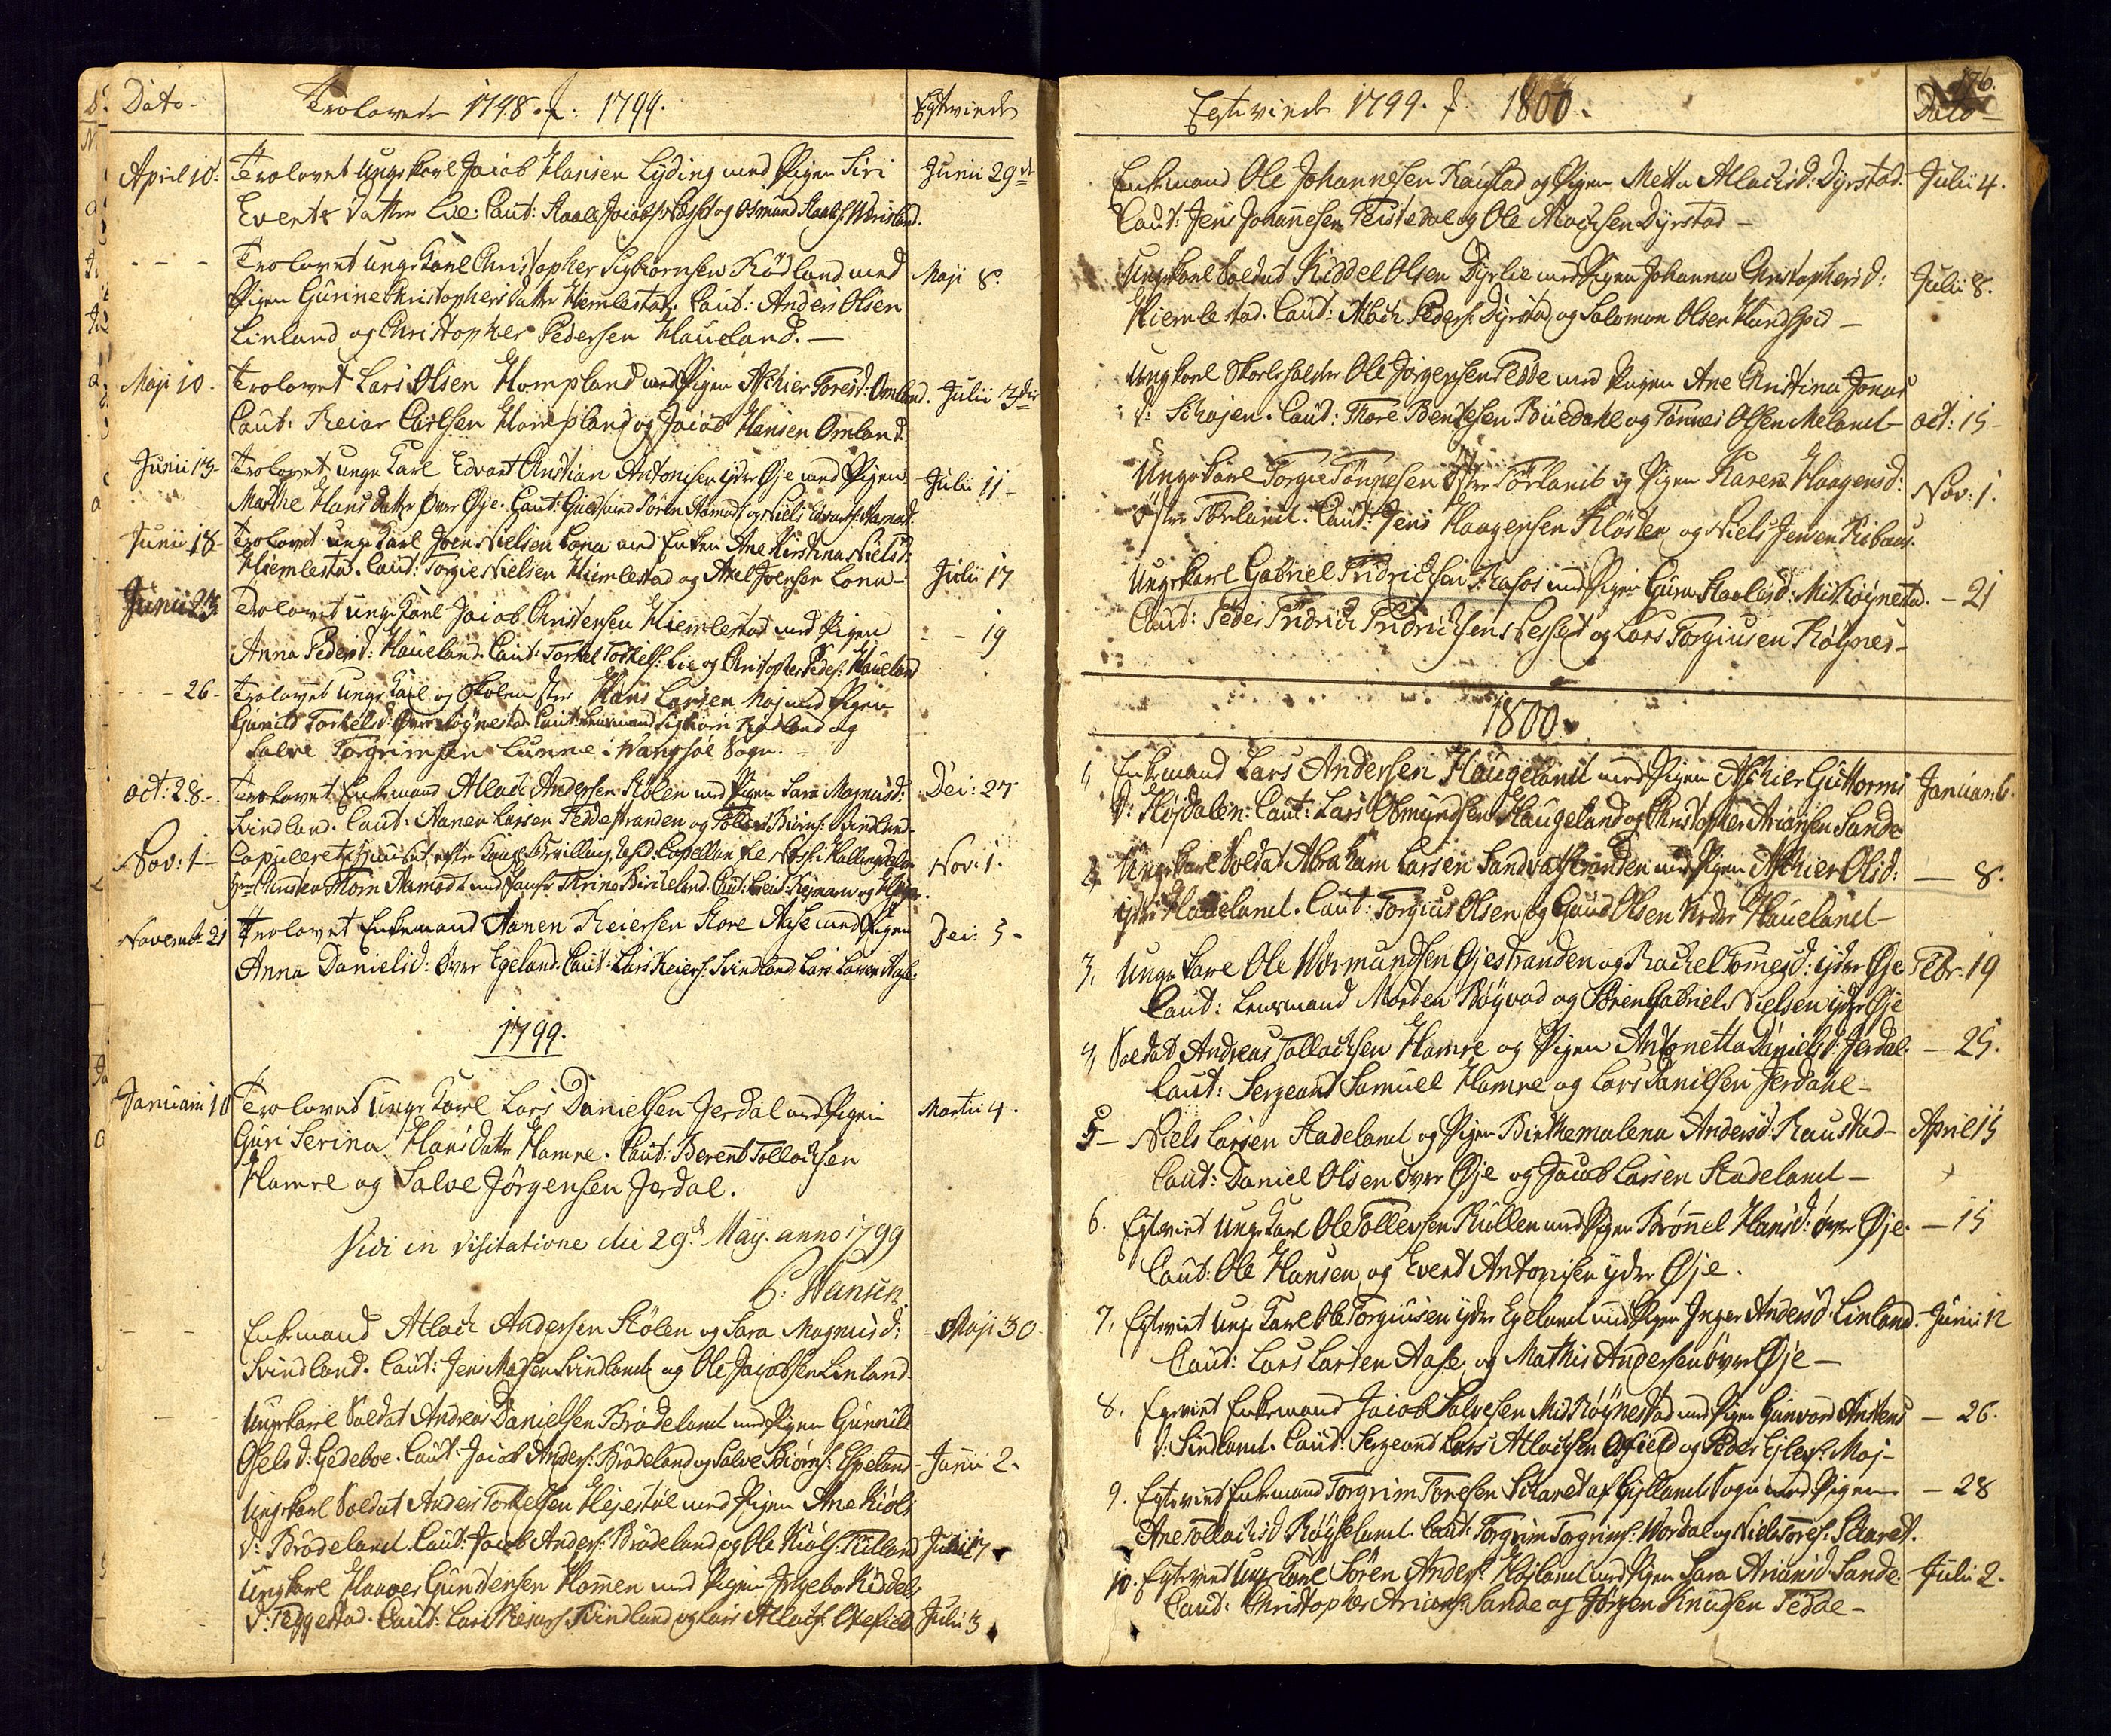 Dato - Trolovede 1798. f: 1799. Egteviede
April 10: Trolovet Ungekarl Jacob Hansen Lyding med Pigen Siri Junii 29de
Everts Datter Lie. Caut: Staale Jacobs: og Osmund Staals:
- - - Trolovet ungeKarl Christopher Sigbiørnsen Rødland med Maji 8.
Pigen Gurine Christophers Datter Hiemlestad. Caut: Anders Olsen
Linland og Christopher Pedersen Haueland. -
Maji 10. Trolovet Lars Olsen Hompland med Pigen Aschier Toresd: Omland. Julii 3die
Caut: Reiar Carlsen Hompland og Jacob Hansen Omland.
Junii 13- Trolovet unge Karl Edvart Christian Antonisen ydre Øje med Pigen Julii 11-
Marthe Hans datter Øvre Øje. Caut: Sören Aamodt og Niels Edvarts: Aamodt.
Junii 18- Trolovet unge Karl Joen Nielsen Lona med Enken Ane Kirstina Nielsd:
Hiemlestad. Caut: Torgie Nielsen Hiemlestad og Axel Joensen Lona- Julii 17
Junii 23 Trolovet unge Karl Jacob Christensen Hiemlestad med Pigen
Anna Pedersd: Haueland. Caut: Torkel Torkels: Lie og Christopher Peders: Haueland - - 19
- 26- Trolovet unge Karl og Skolemester Hans Larsen Moj med Pigen
Gunild Torkelsd: Øvre Röynestad. Caut: Lensmand Sigbiörn Rødland og
Salve Torgrimsen Lunne i Wangsøe Sogn. -
Oct: 28- Trolovet Enkemand Atlach Andersen Stölen med Pigen Sara Magnusd: Dec: 27
Svindland. Caut: Aanen Larsen Feddestranden og Tollev Biörns: Svindland-
Nov: 1- Copuleret i Huuset efter Kongl: Bevilling, Resid: Capellan til Næs i Hallingdalen Nov: 1.
Hr Thorn Aamodt med Jomfr Trine Birkeland. Caut:
Novemb: 21 Trolovet Enkemand Aanen Reiersen Store Aase med Pigen Dec: 5-
Anna Danielsd: Øvre Egeland. Caut: Lars Reiers: Svindland Lars Larsen Aase.
1799.
Januarii 10 Trolovet Unge Karl Lars Danielsen Jerdal med Pigen Martii 4.
Guri Serina Hans datter Hamre. Caut: Berent Tollachsen
Hamre og Salve Jörgensen Jerdal.
Vidi in Visitatione die 29d: Maij. anno 1799
P: Hansen.
- - Enkemand Atlach Andersen Stölen og Sara Magnusd: - Maji 30
Svindland. Caut: Jens Madsen Svindland og Ole Jacobsen Linland-
Ungekarl Soldat Andreas Danielsen Brödeland med Pigen Gunnild
Osuls d: Gedeboe. Caut: Jacob Anders: Brödeland og Salve Biörns: Espeland- Junii 2.
Ungekarl Soldat Anders Torkelsen Hejestöl med Pigen Ane Kiöls
d: Brödeland. Caut: Jacob Anders: Brödeland og Ole Kiöls: Rilland Junii 7
Ungekarl Haaver Gundersen Homen med Pigen Ingebor Kiddels
d: Teggestad. Caut: Lars Reiars: Svindland og Lars Atlachs: Oxefield Julii 3
Egteviede 1799. f. 1800. 176. Dato
Enkemand Ole Johannesen Raustad og Pigen Metta Atlachsd: Dyrstad. Julii 4.
Caut: Jens Johannesen Teistedal og Ole Atlachsen Dyrstad -
Ungekarl Soldat Kiddel Olsen Dyrlie med Pigen Johanna Christophersd: Julii 8.
Hiemlestad. Caut: Atlach Peders: Dyrstad og Salomon Olsen Hundspid -
Ungkarl Skoeleholder Ole Jörgensen Fedde med Pigen Ane Christina Jonas
d: Schojen. Caut: Thore Bentsen Buedahl og Tönnes Olsen Meland- Oct: 15-
Ungekarl Torgie Tönnesen Östre Törland og Pigen Karen Haagensd: Nov: 1.
Östre Törland. Caut: Jens Haagensen Klöster og Niels Jensen Risbaus.
Ungekarl Gabriel Fridrichsen Trafos med Pigen Guru Staalesd: Mit Röynestad. - 21
Caut: Peder Fridrich Fridrichsen Nesset og Lars Torgiusen Röÿnes-
1800.
1, Enkemand Lars Andersen Haugeland med Pigen Aschier Guttorms Januar: 6.
d: Flöjdalen: Caut: Lars Osmundsen Haugeland og Christopher Ariansen Sande
2, Ungekarl Soldat Abraham Larsen Sandvatstranden med Pigen Aschier Olsd: - 8.
ydre Haueland. Caut: Torgius Olsen og Gaud Olsen Nedre Haueland-
3, Unge Karl Ole Wermundsen Øjestranden og Rachel Tomesd: ydre Øje Febr: 19
Caut: Lensmand Morten Röyvad og Sörengabriel Nielsen ydre Øje
4, Soldat Andreas Tollachsen Hamre og Pigen Antonetta Danielsd: Jerdal. - 25.
Caut: Sergeant Samuel Hamre og Lars Danilsen Jerdahl-
5- Niels Larsen Stadeland og Pigen Birthemalena Andersd: Raustad- April 15
Caut: Daniel Olsen övre Øje og Jacob Larsen Stadeland -
6. Egteviet Unge Karl Ole Tollevsen Rullen med Pigen Brönnel Hansd: övre Øje. - 15
Caut: Ole Hansen og Evert Antonisen ydre Øje.
7, Egteviet Unge Karl Ole Torgiusen ydre Egeland med Pigen Inger Andersd: Linland. Junii 12
Caut: Lars Larsen Aase og Mathis Andersen övre Øje -
8. Egteviet Enkemand Jacob Salvesen Mit Röÿnestad med Pigen Gunvord Anstens - 26.
d: Sindland. Caut: Sergeant Lars Atlachsen Oxfield og Peder Eilers: Moj-
9. Egteviet Enkemand Torgrim Toresen Skaret af Gyllands Sogn med Pigen - 28
Ane Tollachsd Röÿseland. Caut: Torgrim Torgrims: Wordal og Niels Tores: Skaret.
10. Egteviet Unge Karl Sören Anders: Höjland med Pigen Sara Ariansd: Sande. Julii 2.
Caut: Christopher Arians: Sande og Jörgen Knudsen Fedde-